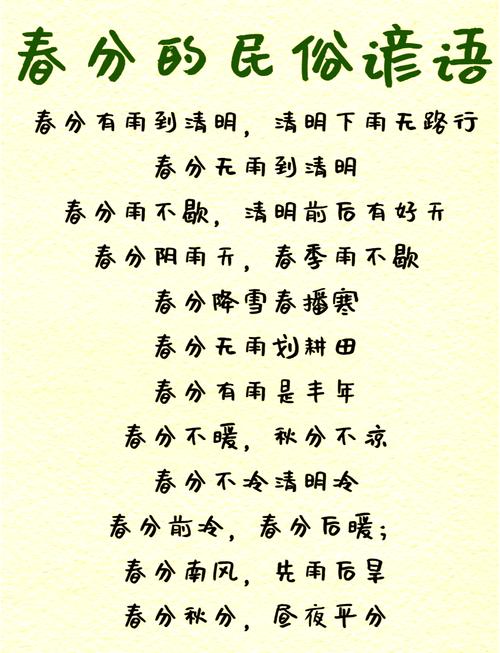 春分的民俗谚语
春分有雨到清明，清明下雨无路行
春分无雨到清明
春分雨不歇，清明前后有好天
春分阴雨天，春季雨不歇
春分降雪春播寒
春分无雨划耕田
春分有雨是丰年
春分不暖，秋分不凉
春分不冷清明冷
春分前冷，春分后暖；
春分南风，先雨后旱
春分秋分，昼夜平分